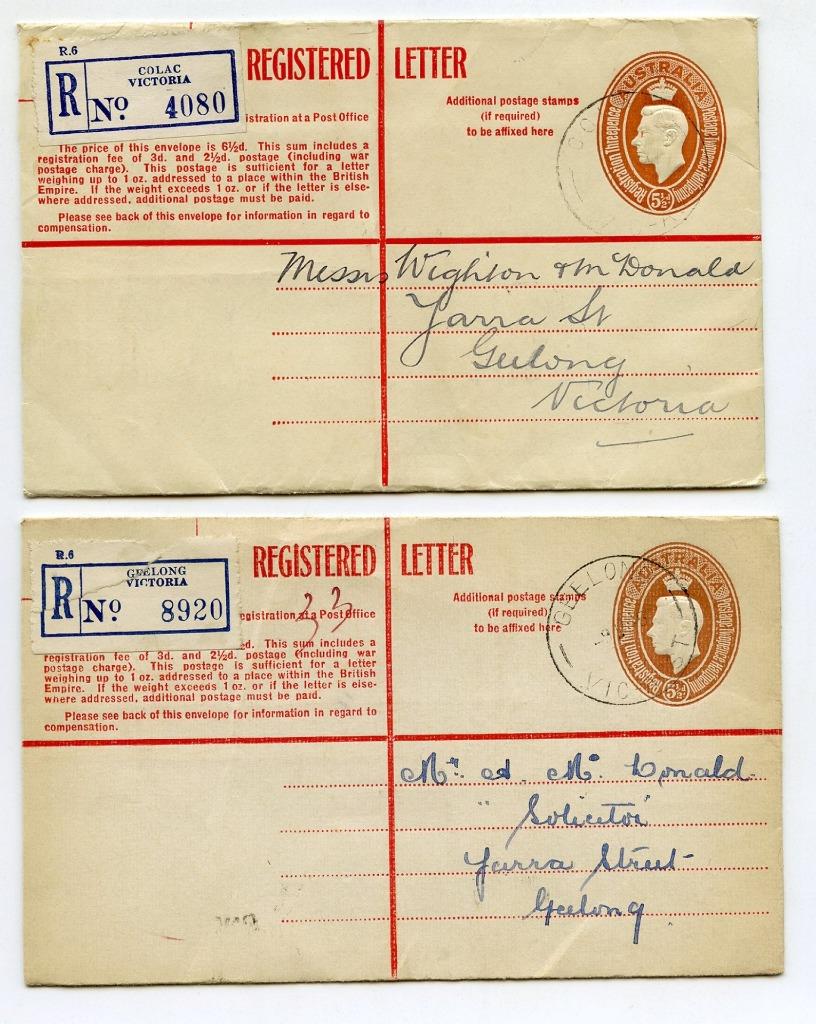 R.6
COLAC
VICTORIA
R No 4080
REGISTERED LETTER
istration at a Post Office
The price of this envelope is 6½d. This sum includes a
registration fee of 3d. and 2½d. postage (including war
postage charge). This postage is sufficient for a letter
weighing up to 1 oz. addressed to a place within the British
Empire. If the weight exceeds 1 oz. or if the letter is else-
where addressed, additional postage must be paid.
Please see back of this envelope for information in regard to
compensation.
Additional postage stamps
(if required)
to be affixed here
AUSTRALIA
Registration Threepence
Postage Twopence Halfpenny
5½d
Messrs Wighton & McDonald
Yarra St
Geelong
Victoria
R.6
GEELONG
VICTORIA
R No 8920
REGISTERED LETTER
egistration at a Post Office
33
d. This sum includes a
registration fee of 3d. and 2½d. postage (including war
postage charge). This postage is sufficient for a letter
weighing up to 1 oz. addressed to a place within the British
Empire. If the weight exceeds 1 oz. or if the letter is else-
where addressed, additional postage must be paid.
Please see back of this envelope for information in regard to
compensation.
Additional postage stamps
(if required)
to be affixed here
GEELONG
VIC
AUSTRALIA
Registration Threepence
Postage Twopence Halfpenny
5½d
Mr. A. Mc. Donald
" Solicitor
Yarra Street
Geelong